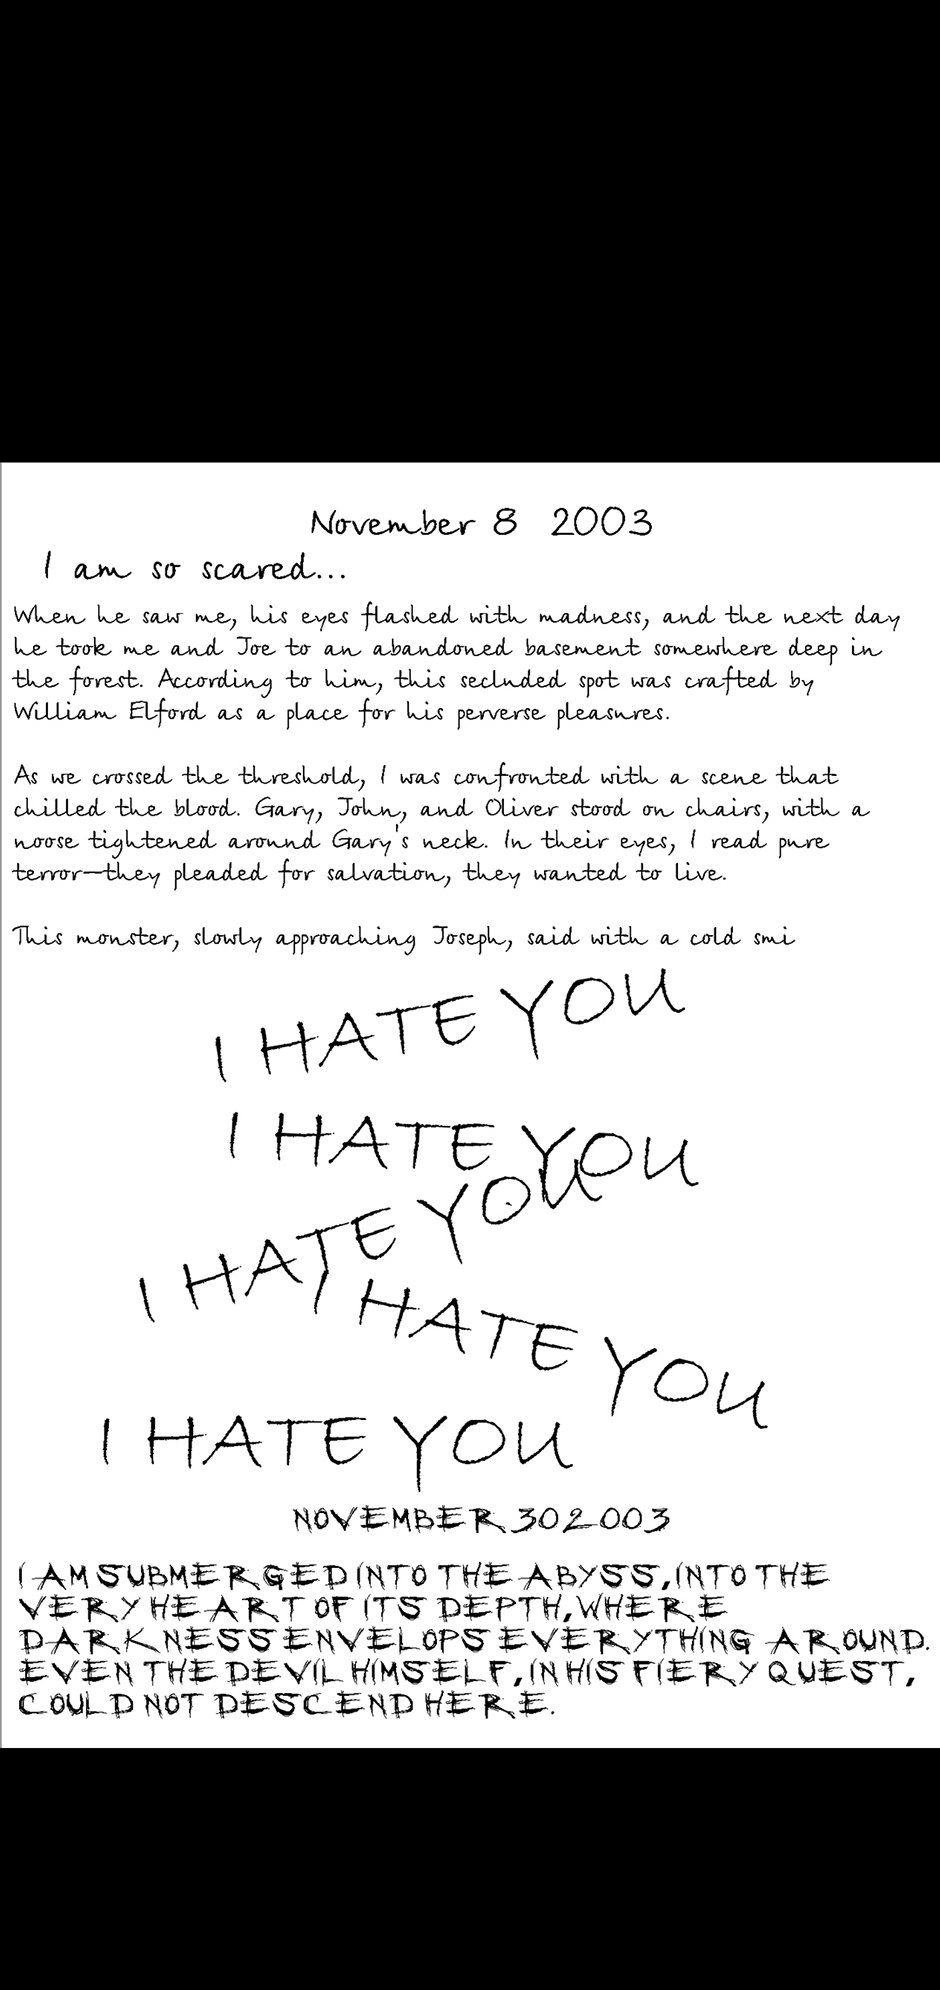 November 8 2003
I am so scared...
When he saw me, his eyes flashed with madness, and the next day
he took me and Joe to an abandoned basement somewhere deep in
the forest. According to him, this secluded spot was crafted by
William Elford as a place for his perverse pleasures.
As we crossed the threshold, I was confronted with a scene that
chilled the blood. Gary, John, and Oliver stood on chairs, with a
noose tightened around Gary's neck. In their eyes, I read pure
terror—they pleaded for salvation, they wanted to live.
This monster, slowly approaching Joseph, said with a cold smi
I HATE YOU
I HATE YOU
I HATE YOU
I HATE YOU
I HATE YOU
NOVEMBER 30 2003
I AM SUBMERGED INTO THE ABYSS, INTO THE
VERY HEART OF ITS DEPTH, WHERE
DARKNESS ENVELOPS EVERYTHING AROUND.
EVEN THE DEVIL HIMSELF, IN HIS FIERY QUEST,
COULD NOT DESCEND HERE.